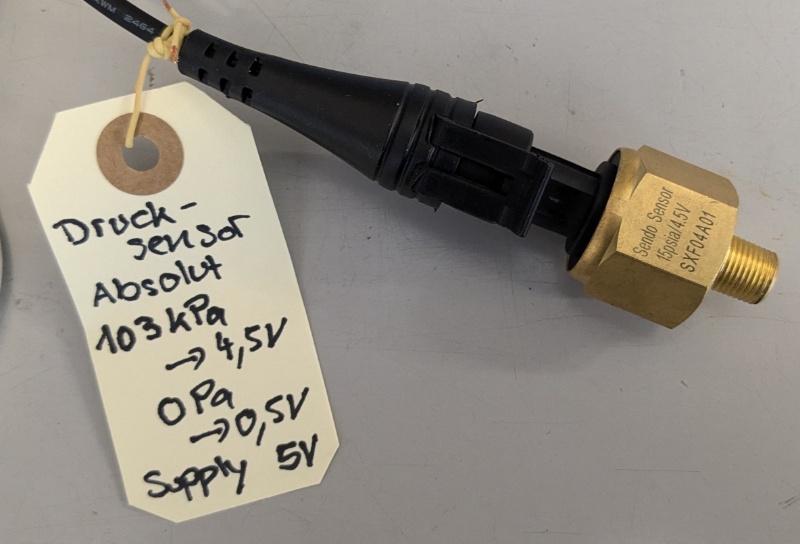 AWM 2464
Druck-
sensor
Absolut
103 kPa
→ 4,5V
0Pa
→ 0,5V
Supply 5V
Sendo Sensor
15psia/4.5V
SXF04A01